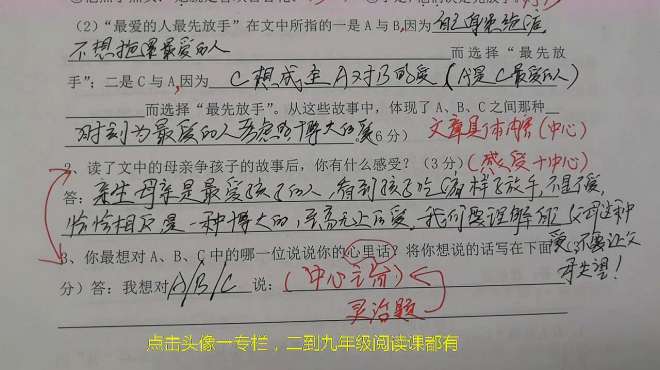 (2)“最爱的人最先放手”在文中所指的一是 A 与 B,因为 自己身患绝症,
不想拖累最爱的人 而选择“最先放
手”;二是 C 与 A,因为 C想成全A对B的爱(A是C最爱的人)
而选择“最先放手”。从这些故事中,体现了 A、B、C 之间那种
时刻为最爱的人考虑的博大的爱(6 分) 文章具体内容(中心)
2、读了文中的母亲争孩子的故事后,你有什么感受?(3 分)(感受+中心)
答:亲生母亲是最爱孩子的人,看到孩子吃痛样子放手,不是不爱,
恰恰相反是一种博大的,至高无上的爱。我们要理解 父母这种
3、你最想对 A、B、C 中的哪一位说说你的心里话?将你想说的话写在下面 爱,不要让父
分)答:我想对 A/B/C 说:(中心主旨) 母失望!
灵活题
点击头像一专栏,二到九年级阅读课都有